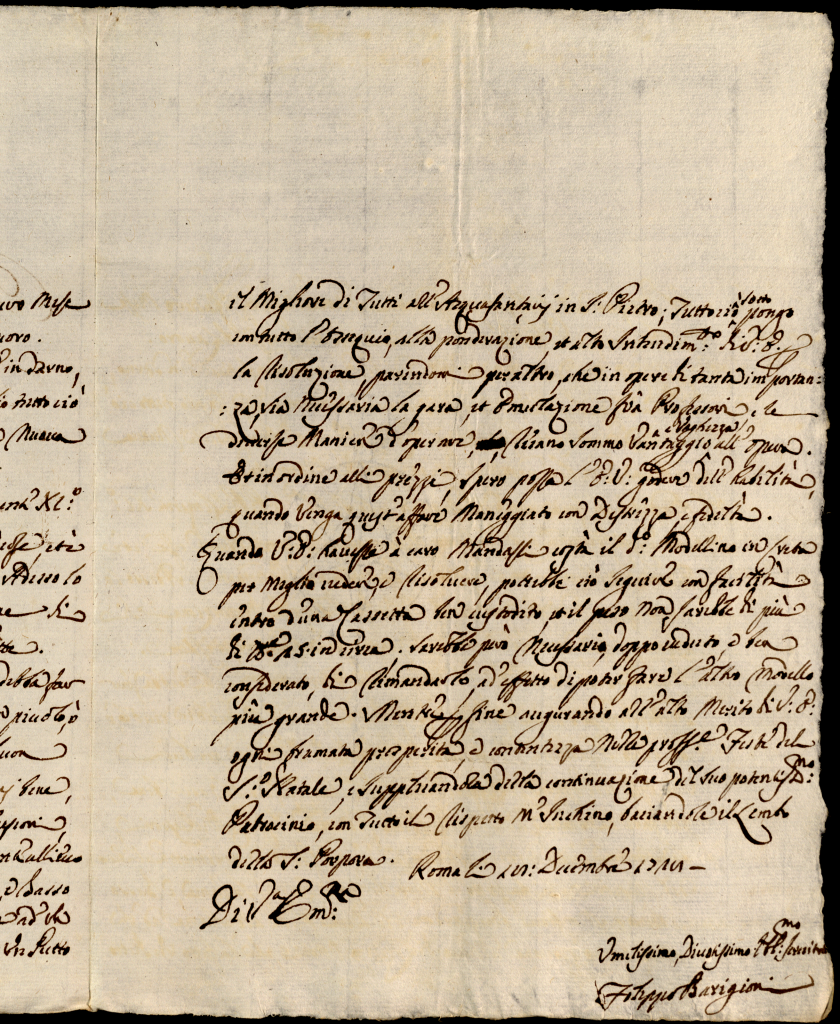 ivo Mese
uovo.
in darno,
io tutto ciò
Nuova
Adesso lo
di
debba far
piccolo, ò
buon
bene,
e Basso
ad un
un Putto
il Migliore di Tutti all' Acquasantarij in S. Pietro; Tutto ciò sottopongo
con tutto l'Ossequio, alla ponderazione, et alto Intendim.to di V: E:
la risoluzione, parendomi per altro, che in opere di tanta importan:
:za, sia Necessaria la gara, et emulazione frà Professori, e le
diverse Maniere d'operare, recano sommo Vantaggio e Vaghezza all' opera.
Et in ordine alli prezzi, spero possa l'E: V: godere dell' habilità,
quando venga quest' affare Maneggiato con Destrezza, e fedeltà.
Quando V: E: havesse à caro Mandassi costà il d.o Modellino in creta
per meglio vedere, e risolvere, potrebbe ciò seguire con facilità
entro d'una Cassetta ben custodito, et il peso non sarebbe di più
di 15 in circa. Sarebbe però Necessario, doppo veduto, e ben
considerato, di rimandarlo, ad' effetto di poter fare l'altro Modello
più grande. Mentre per fine augurando all' alto Merito di V: E:
ogni bramata prosperità, e contentezza Nelle pross.e Feste del
S.o Natale, e supplicandola della continuazione del suo potentiss.mo
Patrocinio, con Tutto il rispetto M' Inchino, baciandole il Lembo
della S: Porpora. Roma li Decembre
Di V.a Em.za
Umilissimo, Divotissimo Obb.mo servitore
Filippo Barigioni